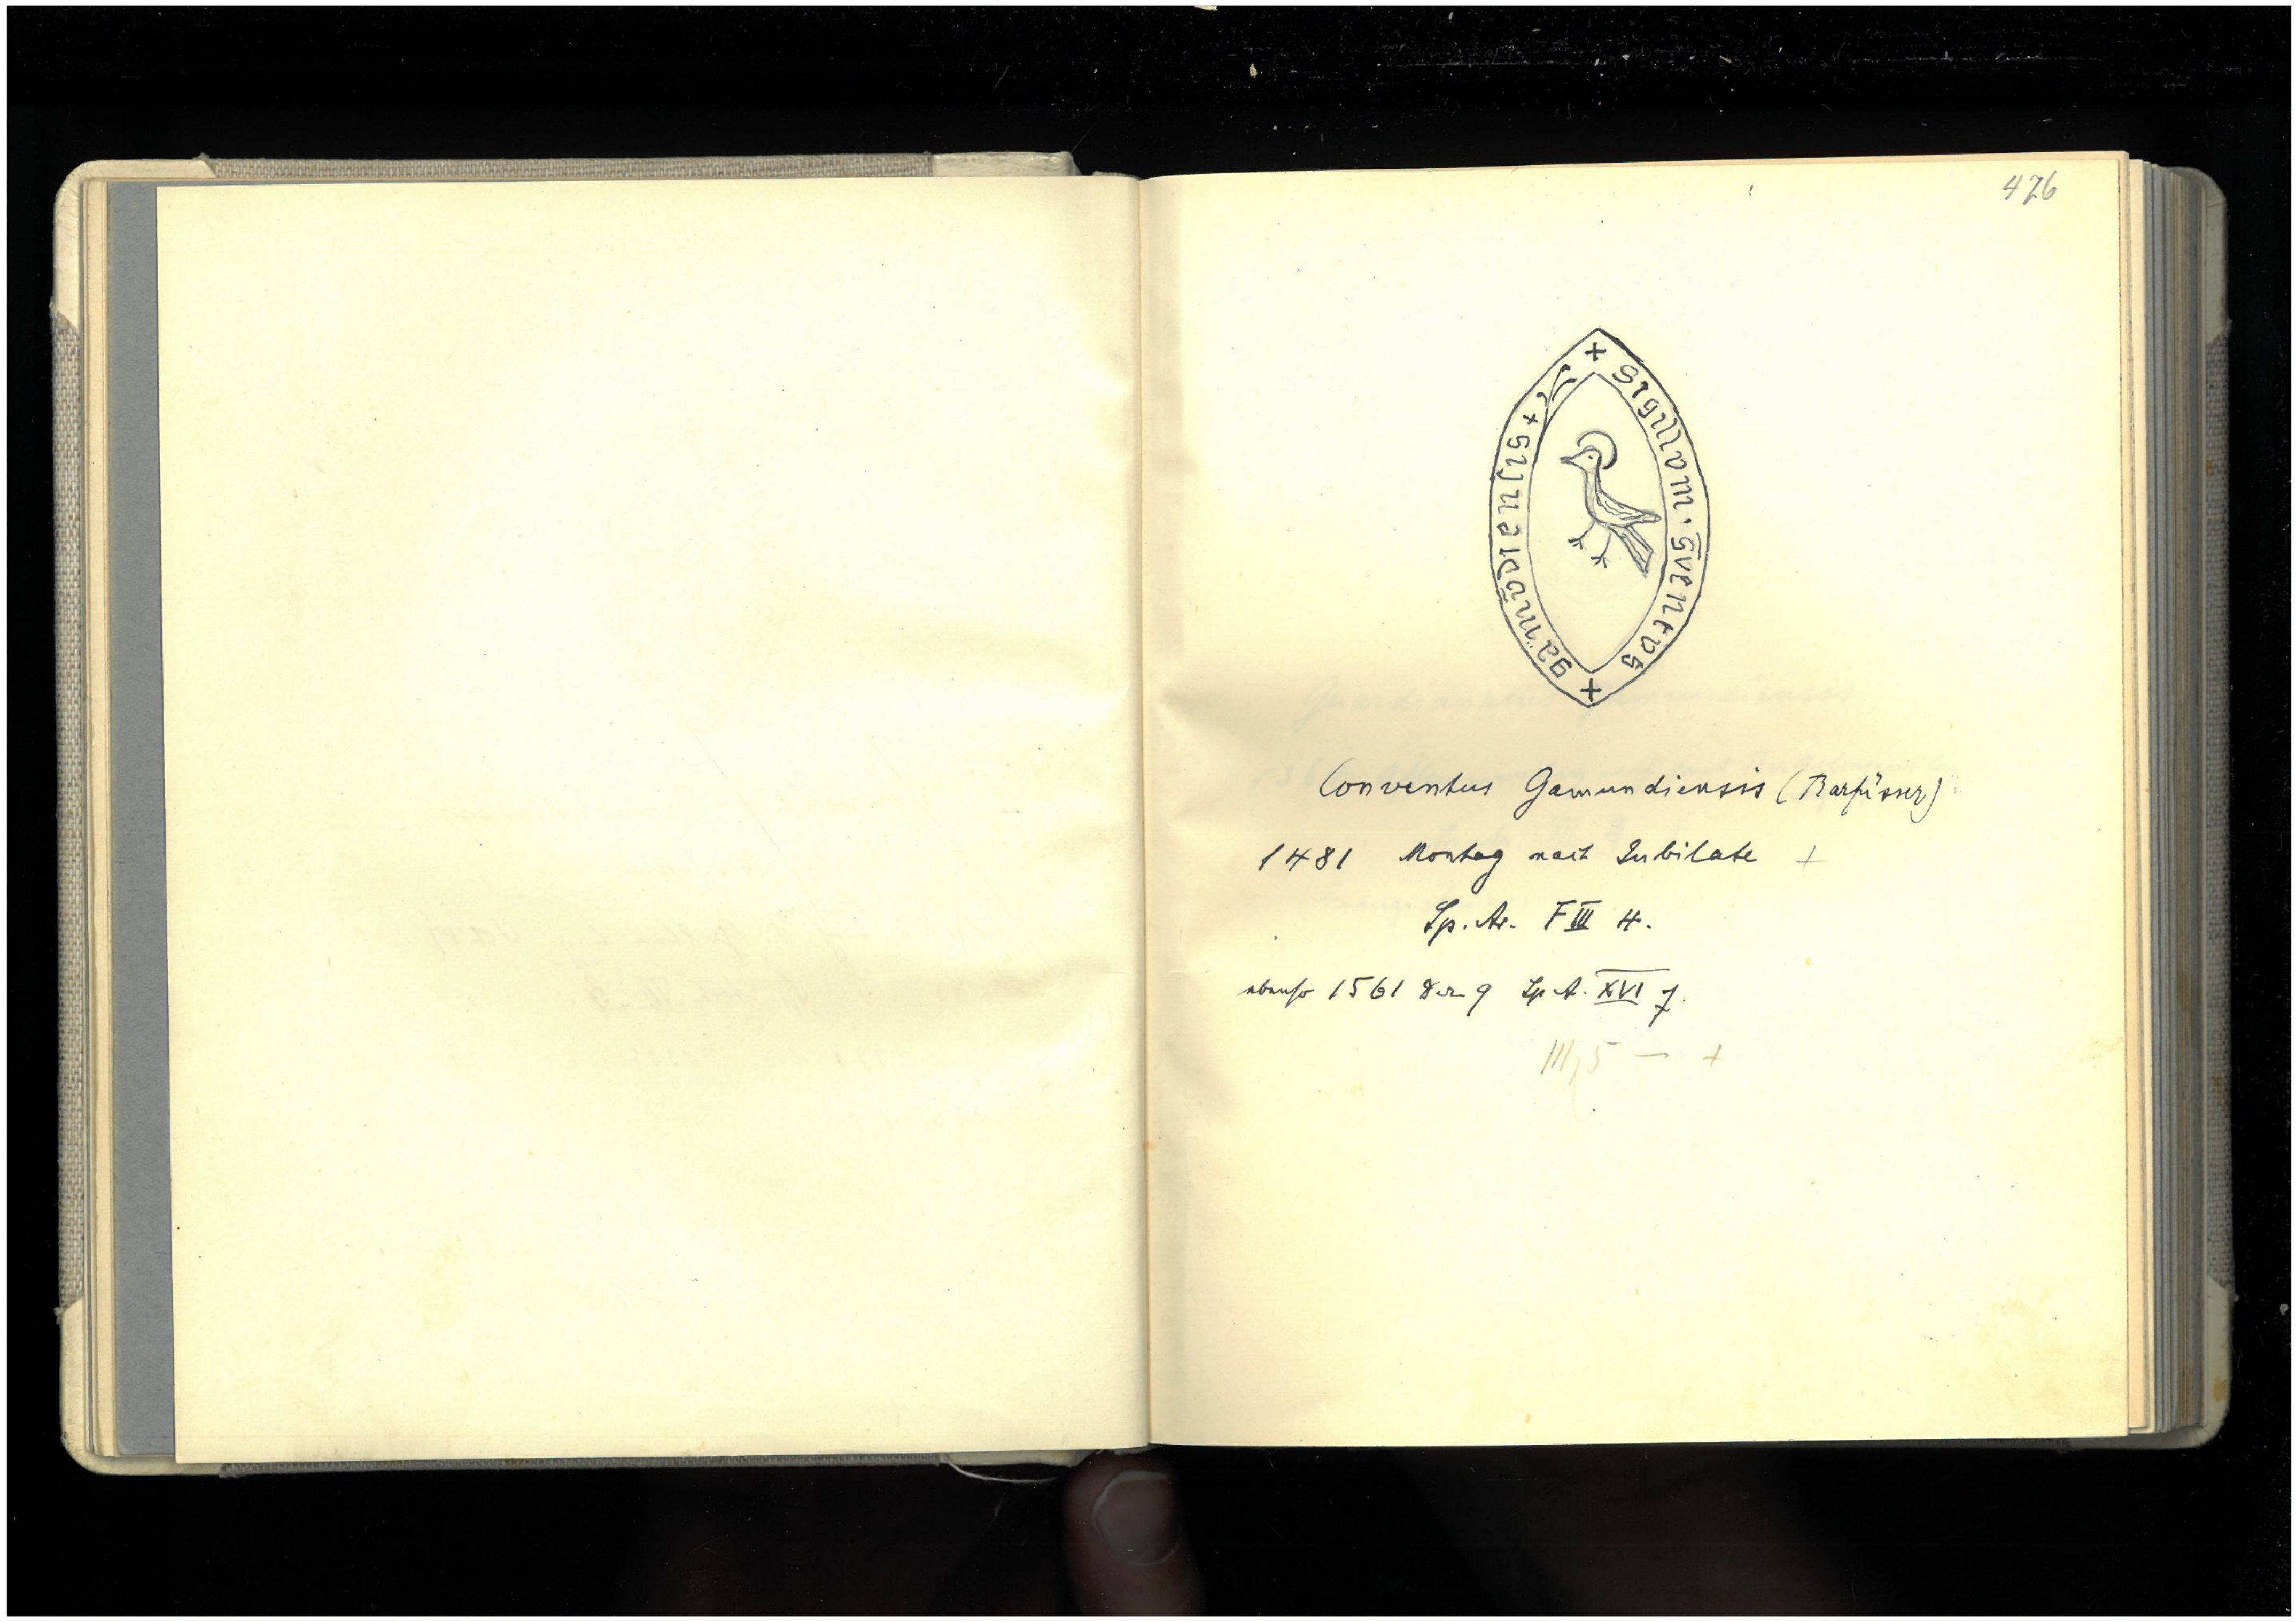 476
+ Sigillvm · 9ventvs + gamvndiensis +
Conventus Gamundiensis (Barfüsser)
1481 Montag nach Jubilate +
Sp. Ar. F III 4.
ebenso 1561 Dez 9 Sp. A. XVI 7.
III, 5 — +